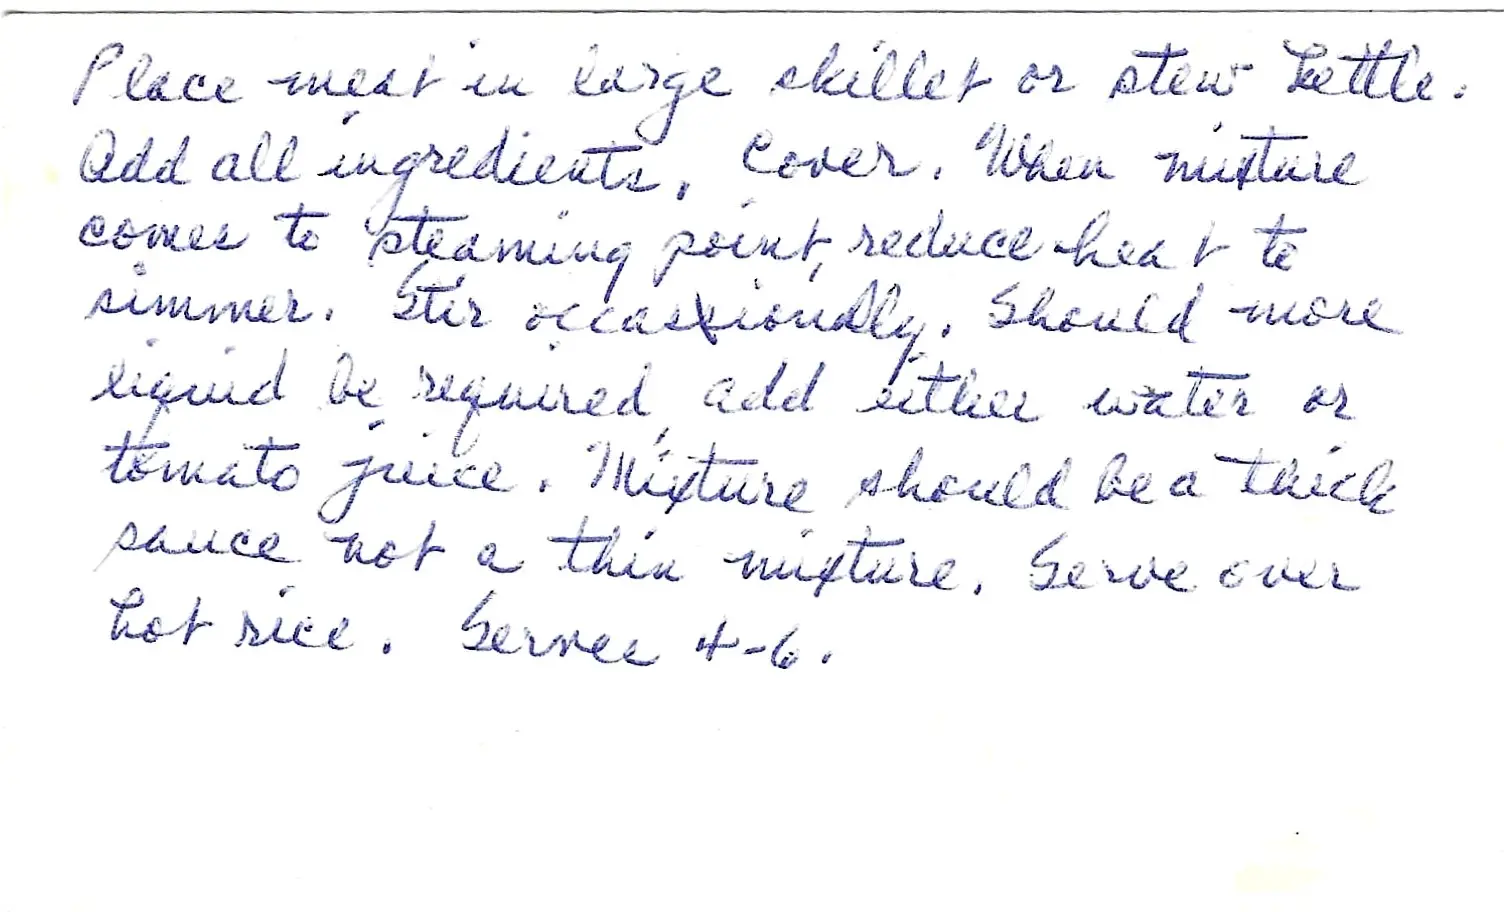 Place meat in large skillet or stew kettle.
Add all ingredients. Cover. When mixture
comes to steaming point, reduce heat to
simmer. Stir occassionally. Should more
liquid be required, add either water or
tomato juice. Mixture should be a thick
sauce not a thin mixture. Serve over
hot rice. Serves 4-6.